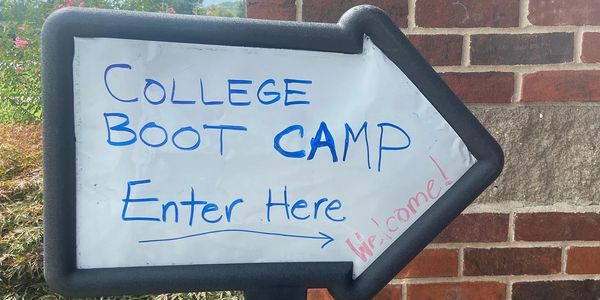 COLLEGE
BOOT CAMP
Enter Here
Welcome!